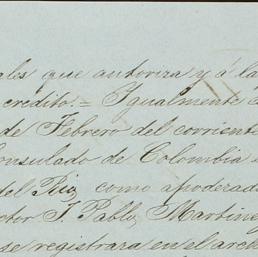 ales que autoriza y á la
crédito. = Igualmente
de Febrero del corriente
onsulado de Colombia
del Rio, como apoderado
ctor J. Pablo Martinez
se registrara en el arch